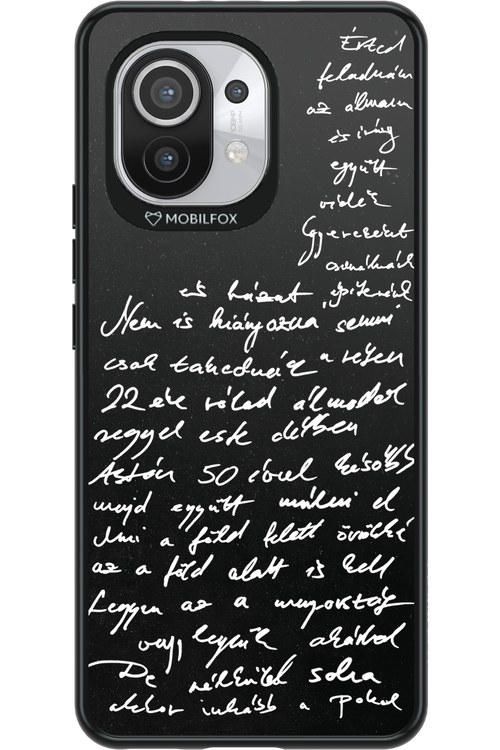 108MP
MOBILFOX
Érted
feladnám
az álmaim
és így
együtt
vidék
Gyerekeket
csinálnánk
és házat építenénk
Nem is hiányozna semmi
csak takednánk a réten
22 éve rólad álmodok
reggel este délben
Aztán 50 évvel később
majd együtt múlni el
Ami a föld felett örökké
az a föld alatt is kell
Legyen az a mennyország
vagy legyünk akárhol
De nélküled soha
akkor inkább a pokol